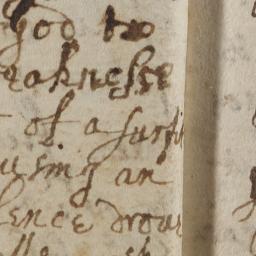 God to
eaknesse
of a surfi
using an
lence drou